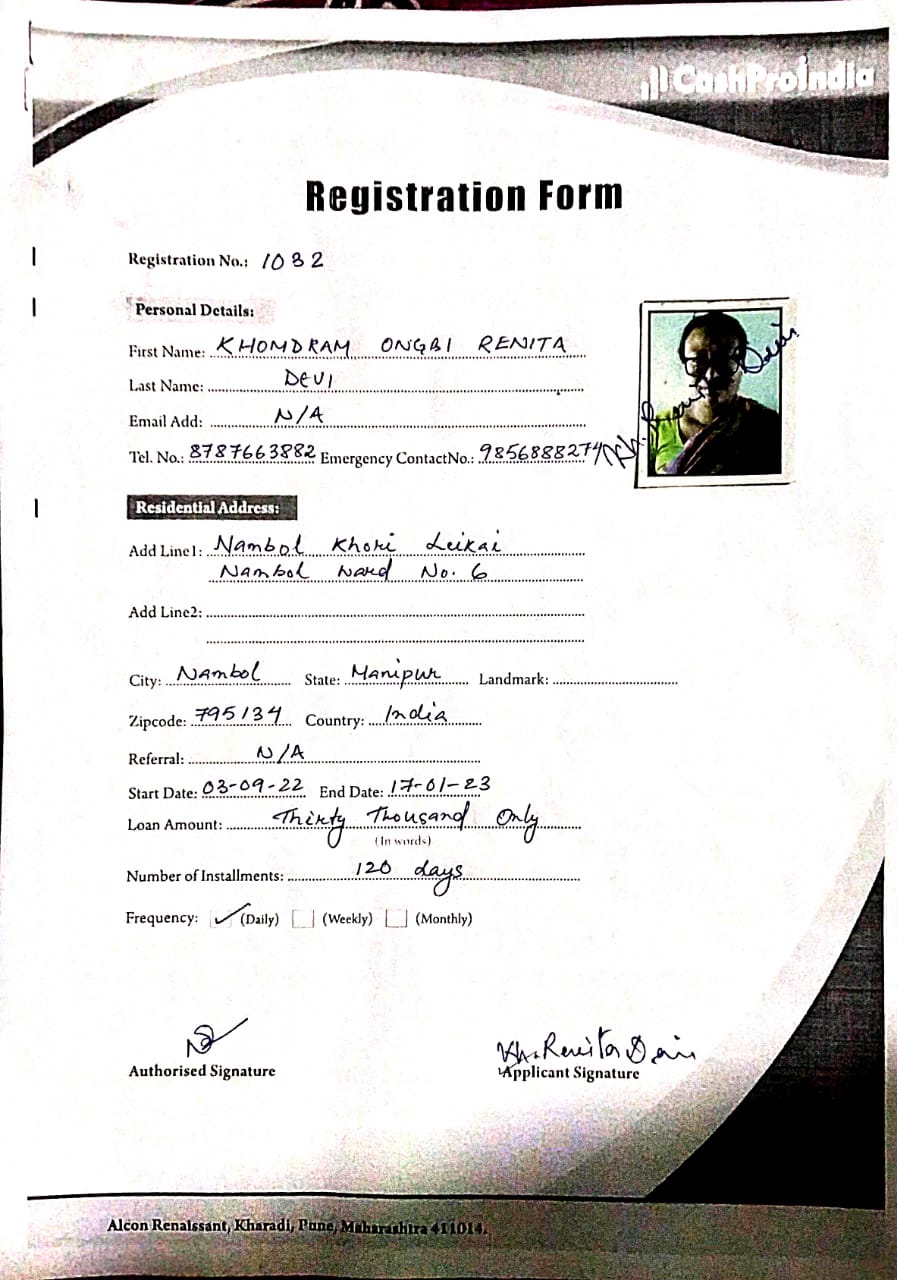 CashProIndia
Registration Form
Registration No.: 1032
Personal Details:
First Name: KHOMDRAM ONGBI RENITA
Last Name: DEVI
Email Add: N/A
Tel. No.: 8787663882 Emergency ContactNo.: 9856888274
Residential Address:
Add Line1: Nambol Khori Leikai
Nambol Ward No. 6
Add Line2:
City: Nambol State: Manipur Landmark:
Zipcode: 795134 Country: India
Referral: N/A
Start Date: 03-09-22 End Date: 17-01-23
Loan Amount: Thirty Thousand Only
(In words)
Number of Installments: 120 days
Frequency: (Daily) (Weekly) (Monthly)
Kh. Renita Devi
Authorised Signature Applicant Signature
Alcon Renaissant, Kharadi, Pune, Maharashtra 411014.